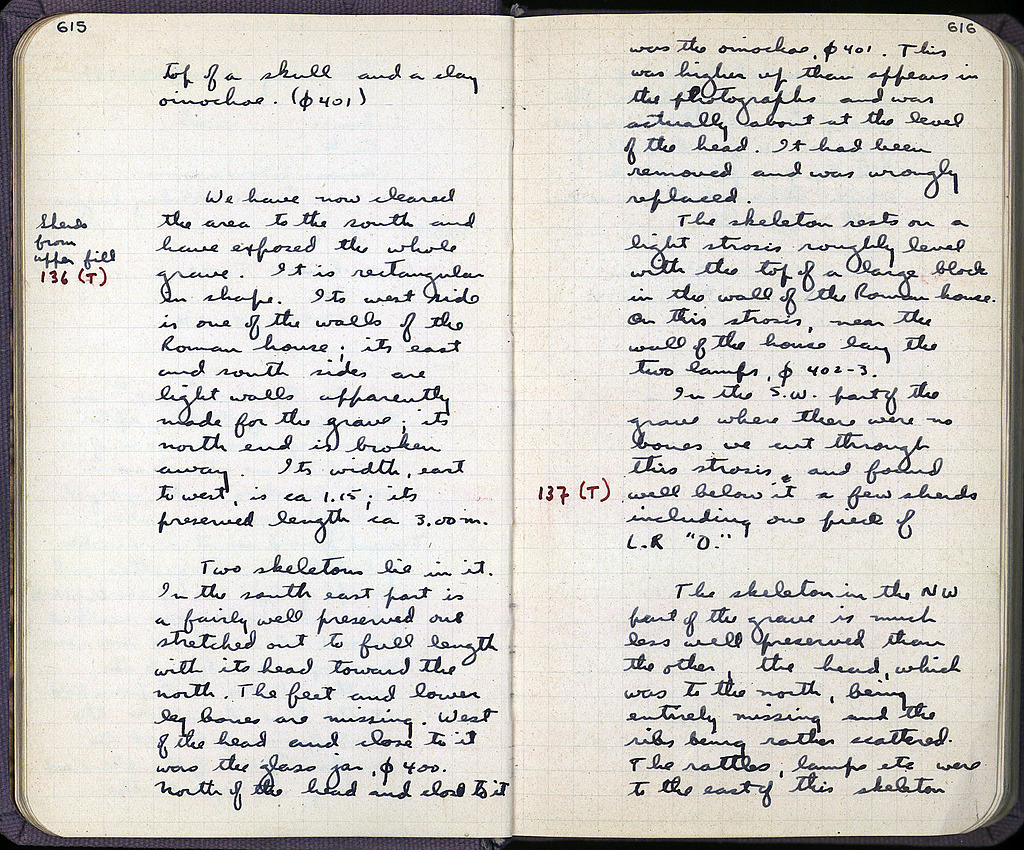 615
top of a skull and a clay
oinochoe. (φ 401)
We have now cleared
the area to the south and
have exposed the whole
grave. It is rectangular
in shape. Its west side
is one of the walls of the
Roman house; its east
and south sides are
light walls apparently
made for the grave; its
north end is broken
away. Its width, east
to west, is ca 1.15; its
preserved length ca 3.00 m.
Sherds
from
upper fill
136 (T)
Two skeletons lie in it.
In the south east part is
a fairly well preserved one
stretched out to full length
with its head toward the
north. The feet and lower
leg bones are missing. West
of the head and close to it
was the glass jar, φ 400.
North of the head and close to it
616
was the oinochoe, φ 401. This
was higher up than appears in
the photographs and was
actually about at the level
of the head. It had been
removed and was wrongly
replaced.
The skeleton rests on a
light strosis roughly level
with the top of a large block
in the wall of the Roman house.
On this strosis, near the
wall of the house lay the
two lamps, φ 402-3.
In the S.W. part of the
grave where there were no
bones we cut through
this strosis, and found
137 (T) well below it a few sherds
including one piece of
L.R "O."
The skeleton in the NW
part of the grave is much
less well preserved than
the other, the head, which
was to the north, being
entirely missing and the
ribs being rather scattered.
The rattles, lamps etc were
to the east of this skeleton